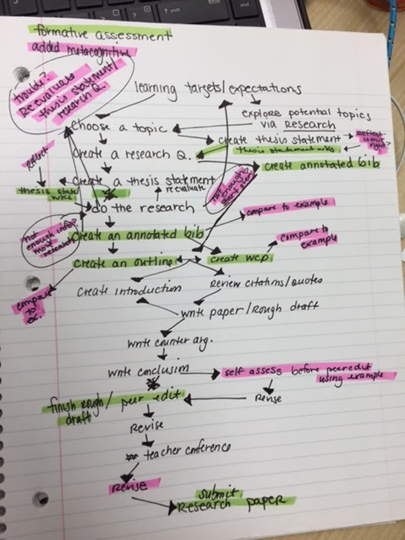 formative assessment
added metacognitive
trouble?
Re evaluate
thesis statement/
research Q.
learning targets/expectations
explore potential topics
via Research
choose a topic
create thesis statement
thesis statement wks
create a research Q.
create annotated bib
reflect
create a thesis statement
re evaluate
thesis state
wks
do the research
compare to example
not enough info
more research
create an annotated bib
compare to
example
create an outline
create WCP
compare
to
ex.
create introduction
Review citations/quotes
write paper/Rough draft
write counter arg.
write conclusion
self assess before peer edit
using example
finish rough/
draft
peer edit
Revise
Revise
teacher conference
Revise
submit
Research paper